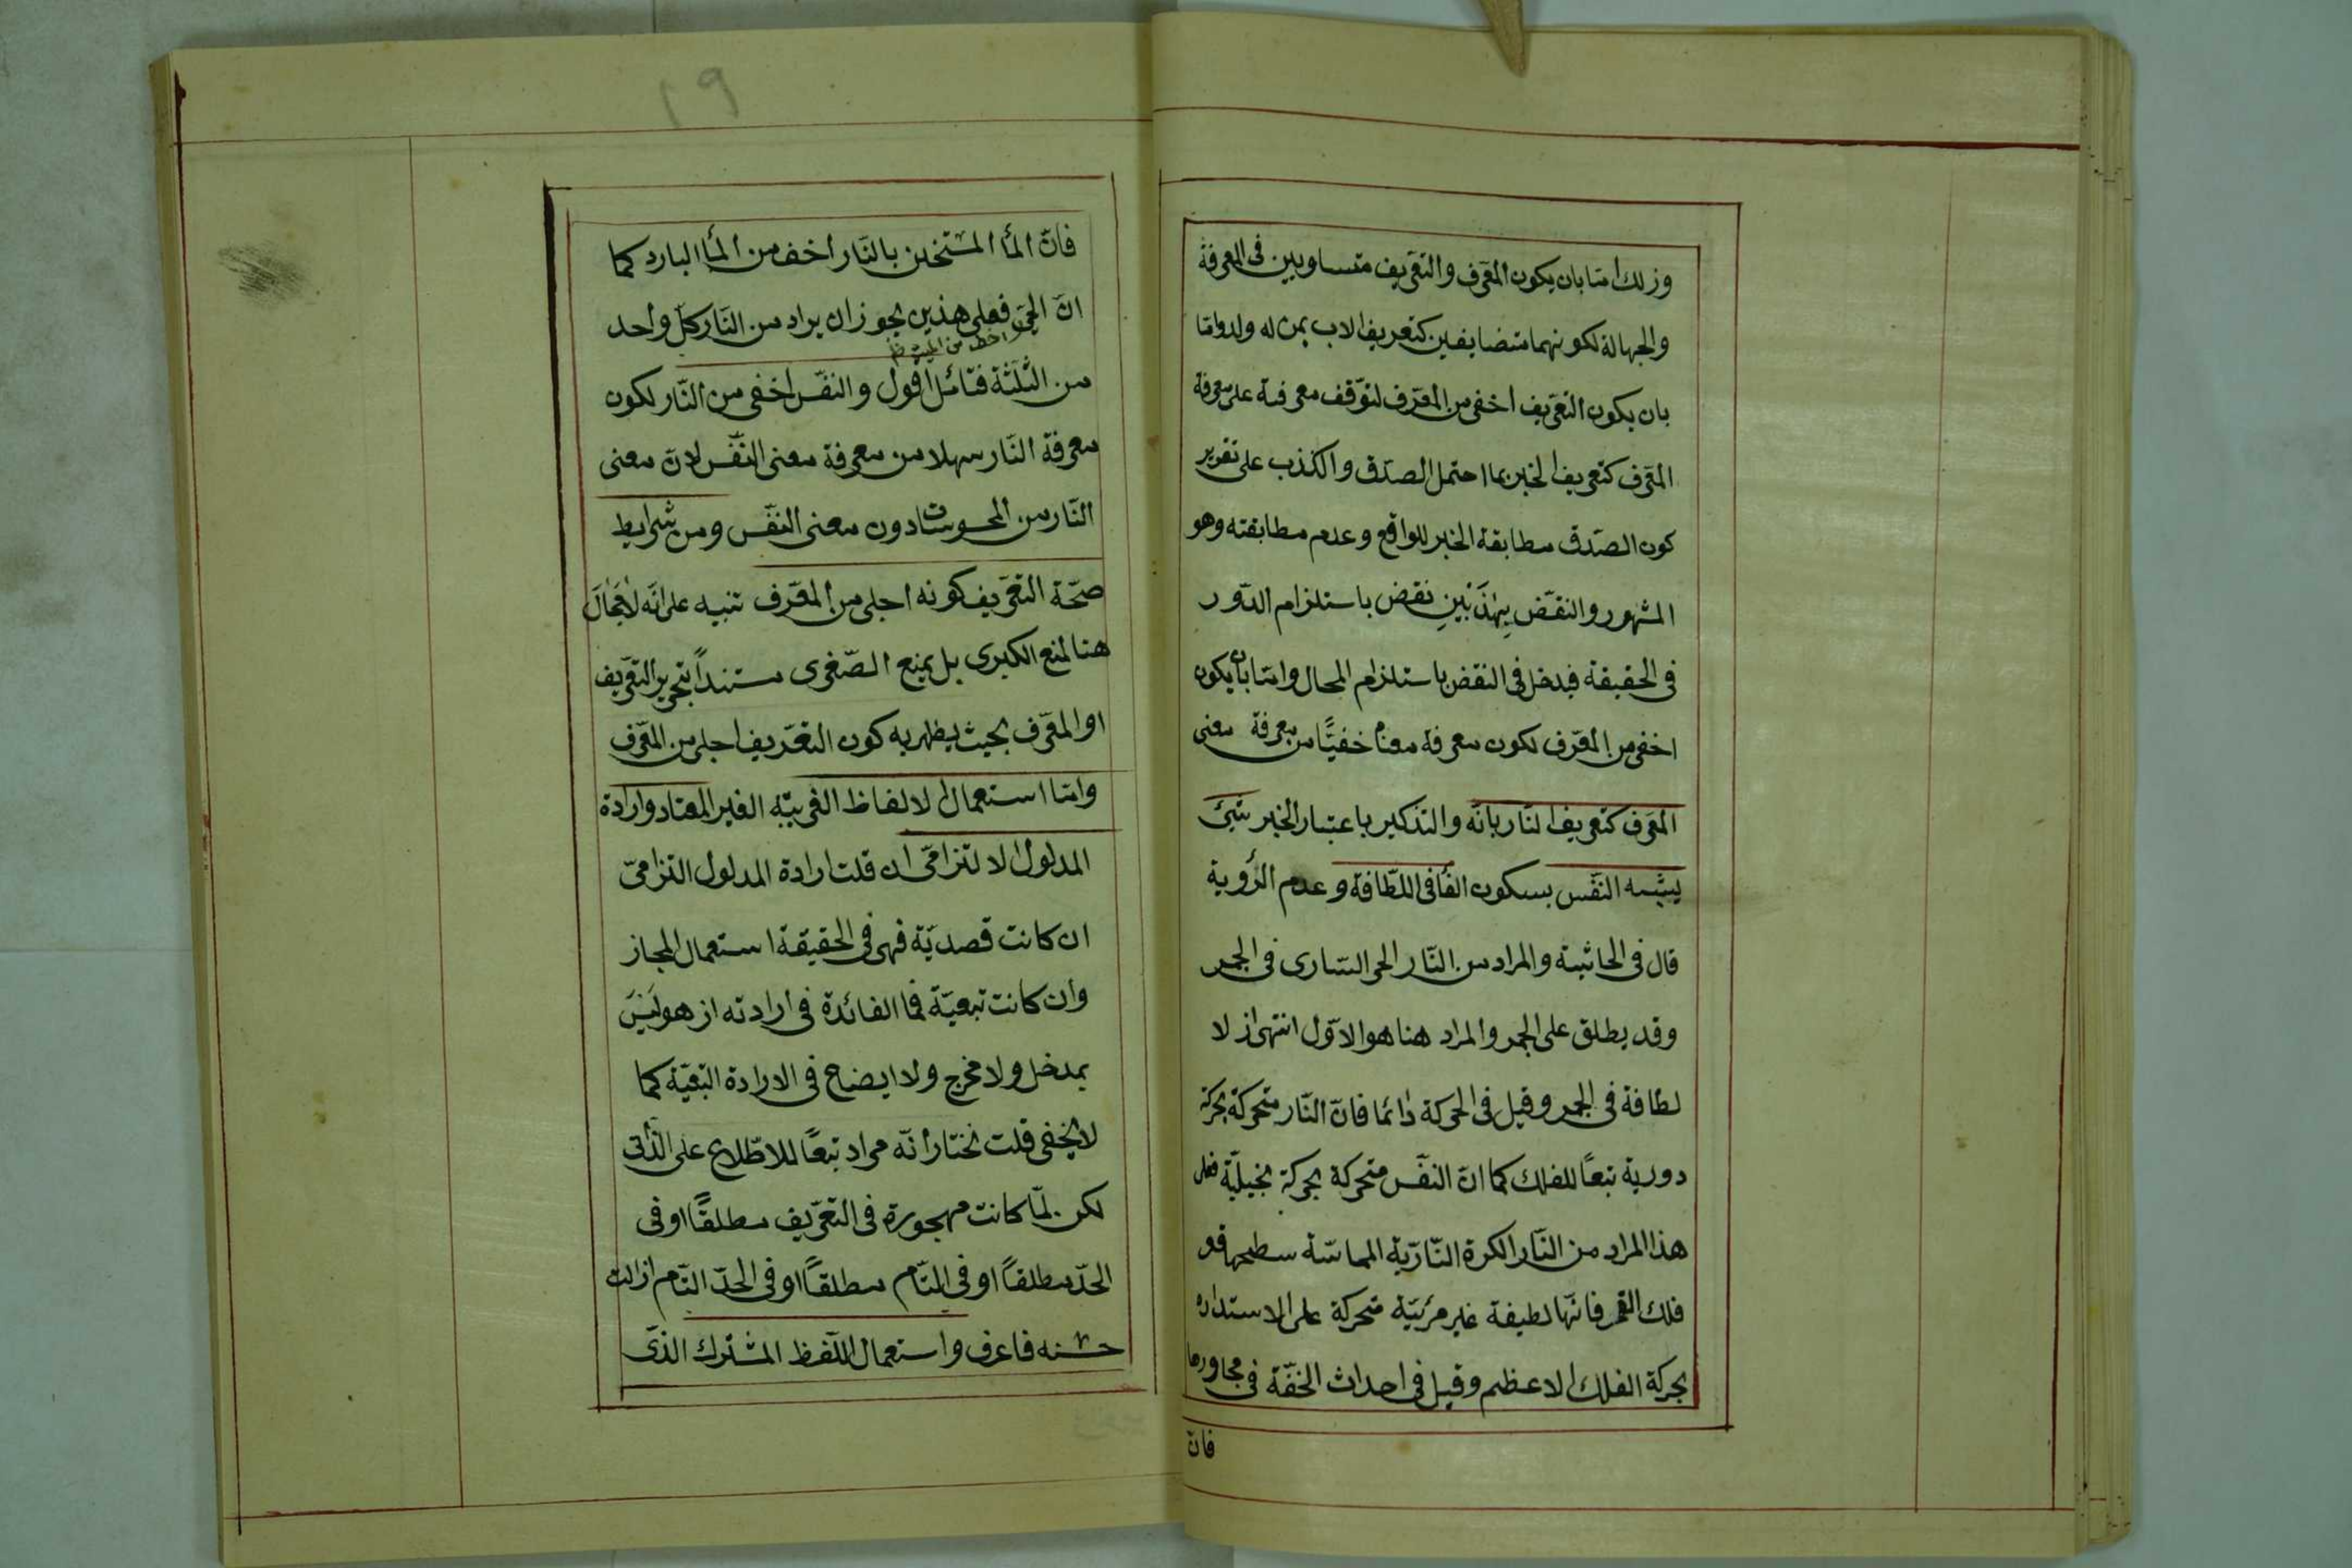 وذلك امّا بان يكون المعَرف والتعَريف متساويين فى المعرفة
والجهالة لكونهما متضايفين كتعريف الاب بمن له ولد وامّا
بان يكون التعَريف اخفى من المعَرف لتوقف معرفته على معرفة
المعَرف كتعريف الخبر بما احتمل الصدق والكذب على تقرير
كون الصدق مطابقة الخبر للواقع وعدم مطابقته وهو
المشهور والنقض بهذَيْنِ نقض باستلزام الدّور
فى الحقيقة فيدخل فى النقض باستلزام المحال وامّا بان يكون
اخفى من المعَرف لكون معرفة معناه خفيًّا من معرفة معنى
المعَرف كتعريف النّار بانّه والتذكير باعتبار الخبر شئ
يشبه النفّس بسكون الفا فى اللطّافة وعدم الرؤية
قال فى الحاشية والمراد من النّار الحر السّارى فى الجمر
وقد يطلق على الجمر والمراد هنا هو الاوّل انتهى اذ لا
لطافة فى الجمر وقيل فى الحركة دائما فانّ النّار متحركة بحركة
دورية تبعًا للفلك كما انّ النفّس متحركة بحركة تخيليّة فعلى
هذا المراد من النّار الكرة النّاريّة المماسّة سطحها
فلك القمر فانّها لطيفة غير مرئيّة متحركة على الاستداره
بحركة الفلك الاعظم وقيل فى احداث الخفّة فى مجاورها
فان
١٩
فانّ المأ المستخن بالنّار اخف من المأ البارد كما
انّ الحىّ فعلى هذين يجوز ان يراد من النّار كلّ واحد
اخف من الميت ظ
من الثلثة فتامّل اقول والنفّس اخفى من النّار لكون
معرفة النّار سهلا من معرفة معنى النفّس لانّ معنى
النّار من المحسوسات دون معنى النفّس ومن شرايط
صحّة التعَريف كونه اجلى من المعَرف تنبيه على انّه لا مجال
هنا لمنع الكبرى بل يمنع الصّغرى مستنداً بتحرير التعَريف
او المعَرف بحيث يظهر به كون التعَريف اجلى من المعَرف
وامّا استعمال الالفاظ الغريبيّة الغير المعتاد وارادة
المدلول الالتزامىّ ان قلت ارادة المدلول التزامىّ
ان كانت قصديّة فهى فى الحقيقة استعمال المجاز
وان كانت تبعيّة فما الفائدة فى ارادته از هو لَيْسَ
بمدخل ولا مخرج ولا ايضاح فى الارادة التبعيّة كما
لا يخفى قلت نختار انّه مراد تبعًا للاطّلاع على الذّاتى
لكن لمّا كانت مهجورة فى التعَريف مطلقًا او فى
الحدّ مطلقاً او فى التّام مطلقاً او فى الحدّ التّام ازالت
حسنه فاعرف واستعمال اللّفظ المشترك الذى